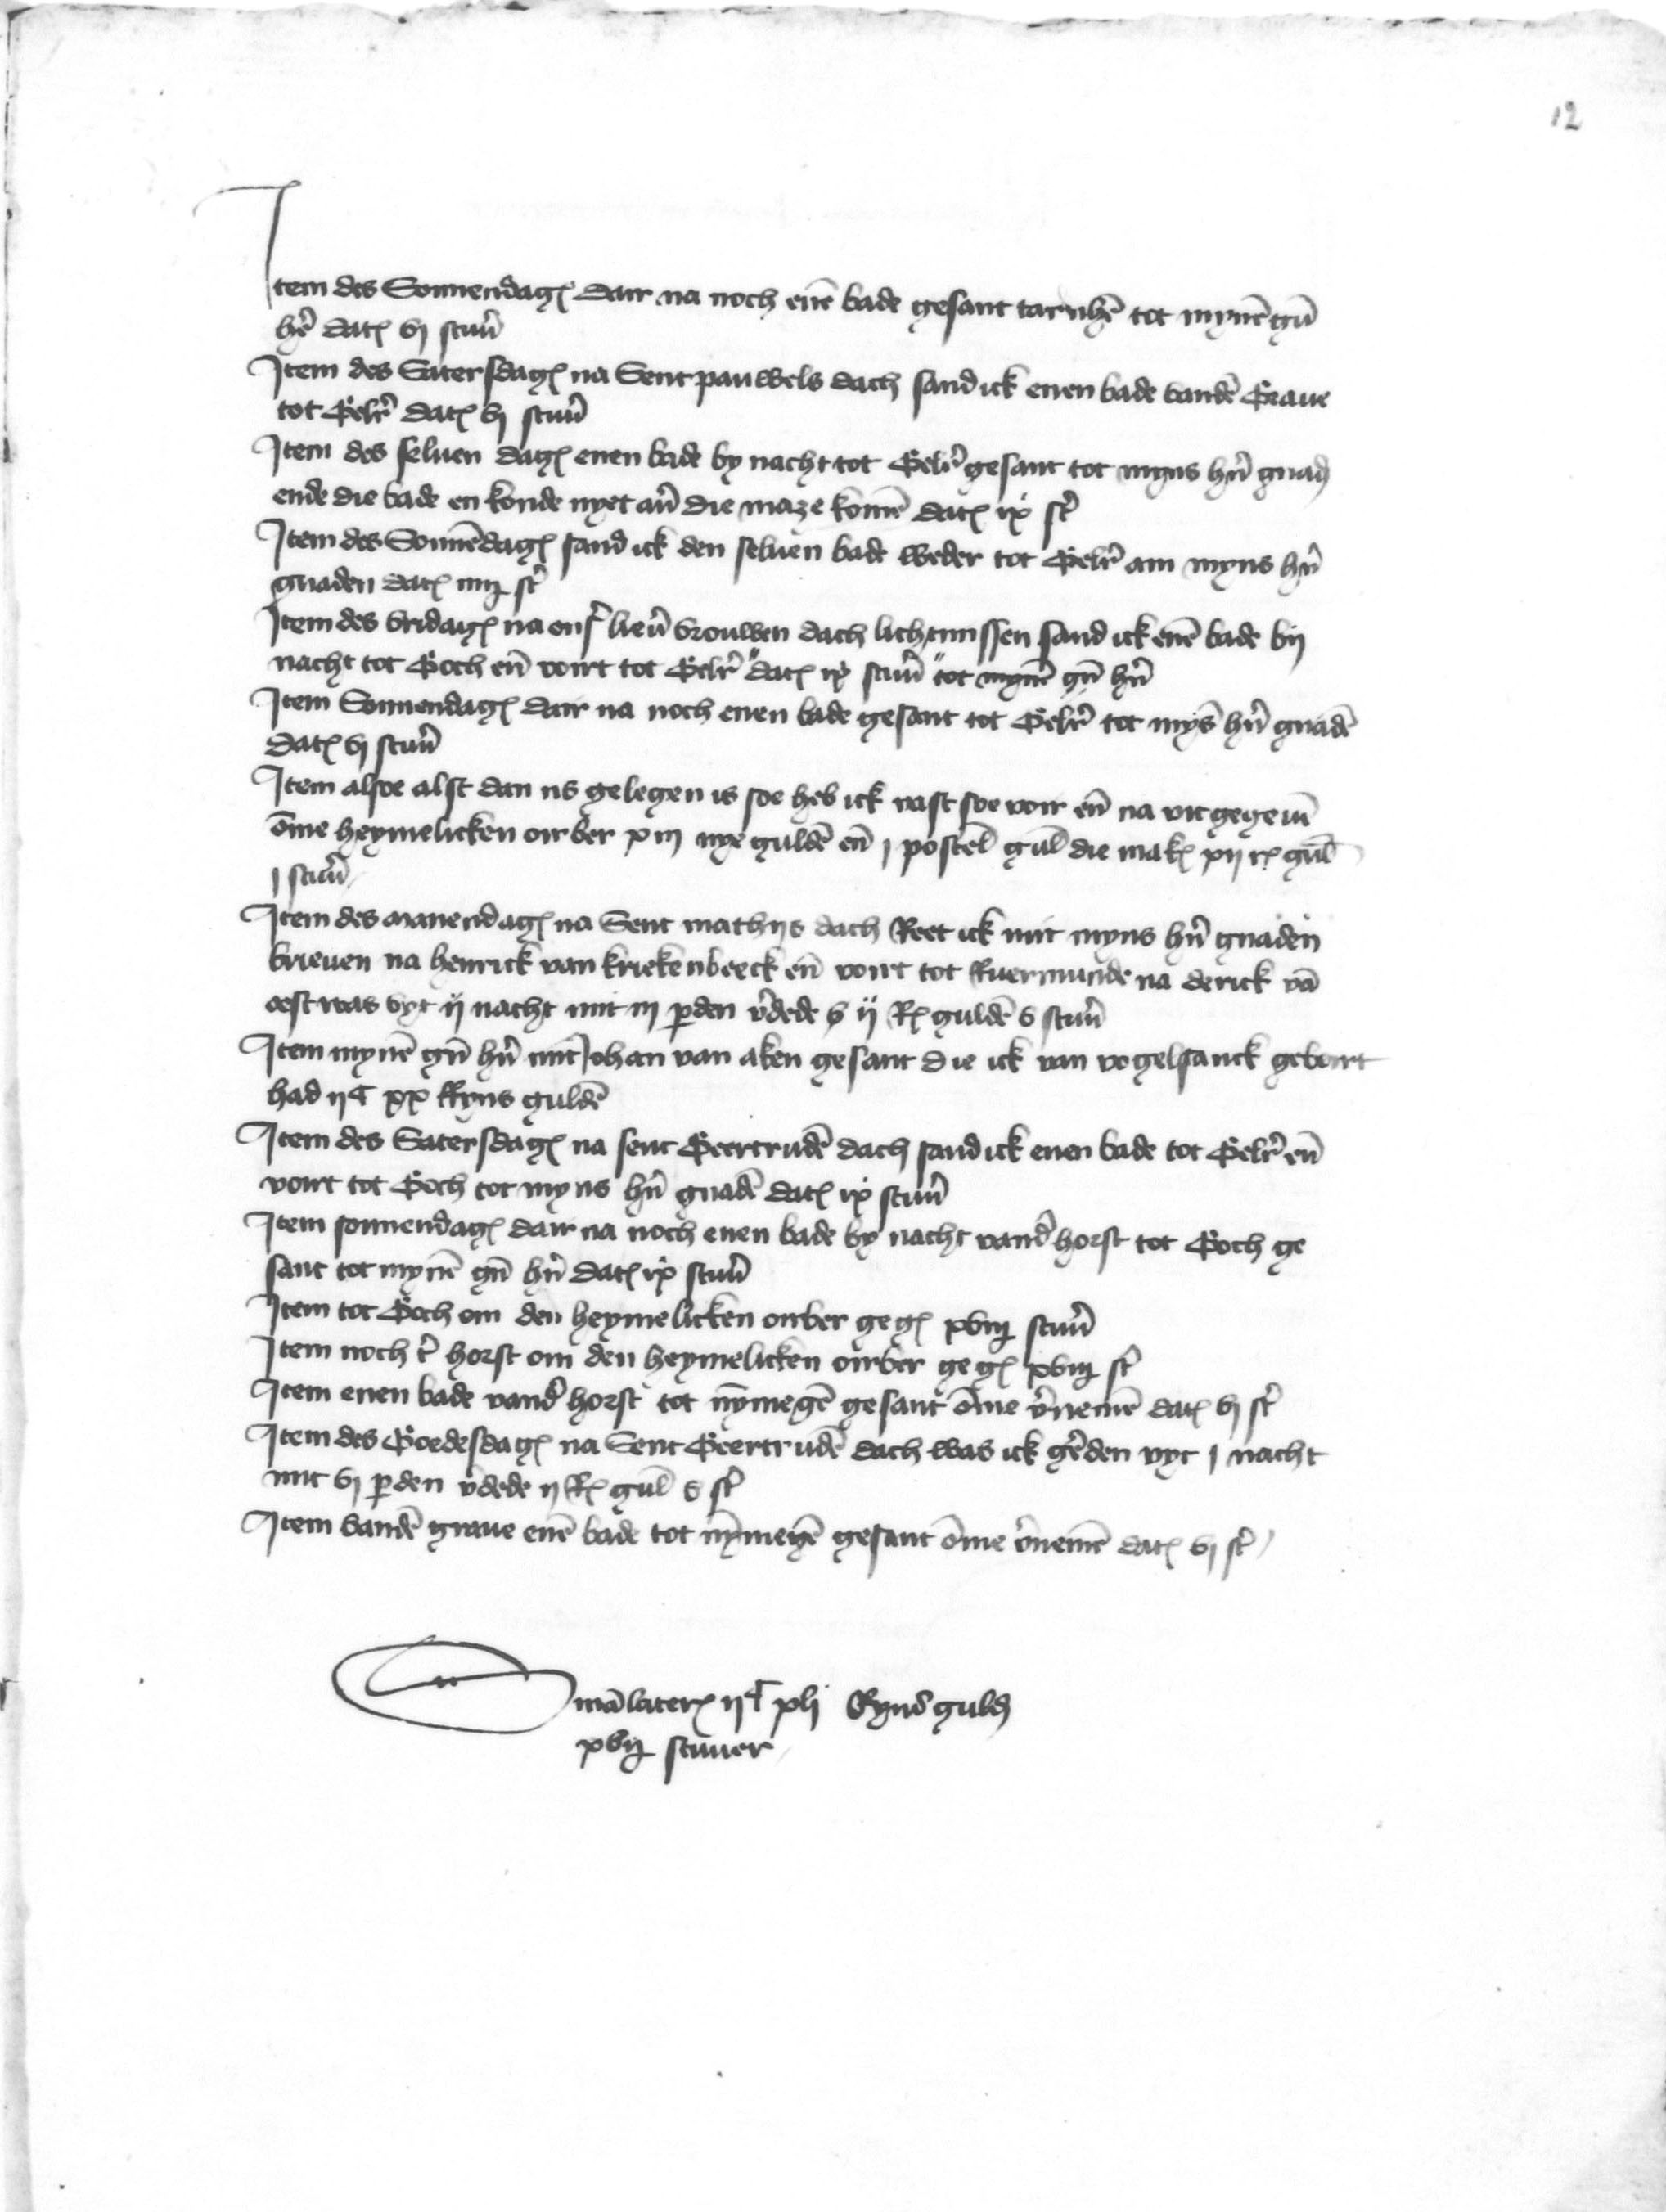 12
Item des Sonnendagꝭ dair na noch enē bade gesant tarnhē tot mynē gn̄
hē datꝭ vj stuu̅
Item des Satersdagꝭ na Sent pauwels dach sand ick enen bade vandē Graue
tot Gelr̄ datꝭ vj stuu̅
Item des seluen dagꝭ enen bade by nacht tot Gelr̄ gesant tot myns hn̄ gnadꝭ
ende die bade en konde nyet au̅ die maze komē datꝭ ix st̄
Item des Sonnēdagꝭ sand ick den seluen bade weder tot Gelr̄ an myns hn̄
gnaden datꝭ iiij st̄
Item des vridagꝭ na ons̄ lieu̅ vrouwen dach lichtmissen sand ick enē bade bij
nacht tot Goch en̄ voirt tot Gelr̄ "datꝭ ix stuu̅ "tot mynē gn̄ hn̄
Item Sonnendagꝭ dair na noch enen bade gesant tot Gelr̄ tot mȳs hn̄ gnadē
datꝭ vj stuu̅
Item alsoe alst dan ns gelegen is soe heb ick vast soe voir en̄ na vit gegeuē
ōme heymelicken oirber xiij nye guldē en̄ j postel̄ gul̄ die makꝭ xij rꝭ gul̄
j stuu̅
Item des manendagꝭ na Sent mathijs dach Reet ick mit myns hn̄ gnaden
brieuen na henrick van kriekenbeeck en̄ voirt tot Ruermunde na derick vā
oest was vyt ij nacht mit iij p̄den v̄dede v ij Rꝭ guldē v stuu̅
Item mynē gn̄ hn̄ mit Johan van aken gesant die ick van vogelsanck gebuert
had ijᶜ xx Ryns guldē
Item des Satersdagꝭ na sent Geertrudē dach sand ick enen bade tot Gelr̄ en̄
voirt tot Goch tot myns hn̄ gnadē datꝭ ix stuu̅
Item sonnendagꝭ dair na noch enen bade by nacht vand̄ horst tot Goch ge
sant tot mynē gn̄ hn̄ datꝭ ix stuu̅
Item tot Goch om den heymelicken oirber gegꝭ xviij stuu̅
Item noch t̄ horst om den heymelicken oirber gegꝭ xviij st̄
Item enen bade vand̄ horst tot nȳmegē gesant ōme v̄nemē datꝭ vj st̄
Item des Goedesdagꝭ na Sent Geertrudē dach was ick gēden vyt j nacht
mit vj p̄den v̄dede ij Rꝭ gul̄ v st̄
Item vandē graue enē bade tot nȳmegē gesant ōme v̄nemē datꝭ vj st̄
Sūmā laterꝭ ijᶜ xlj Ryns guldꝭ
xvij stuuer